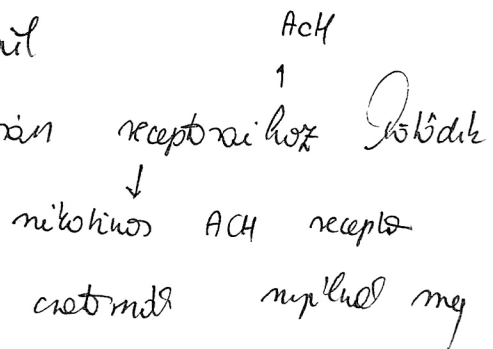 AcH
ül
rán receptoraihoz kötődik
nikotinos ACH recepto
csatornák nyílnak meg